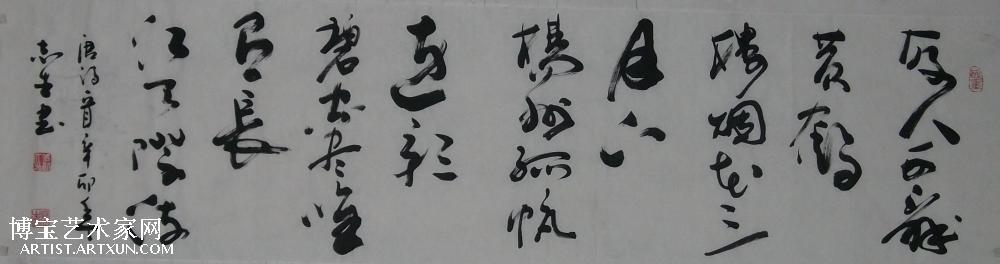 故人西辭
黄鶴
樓烟花三
月下
楊州孤帆
遠影
碧空尽唯
見長
江天際流
唐詩一首辛卯春
書
博宝艺术家网
ARTIST.ARTXUN.COM